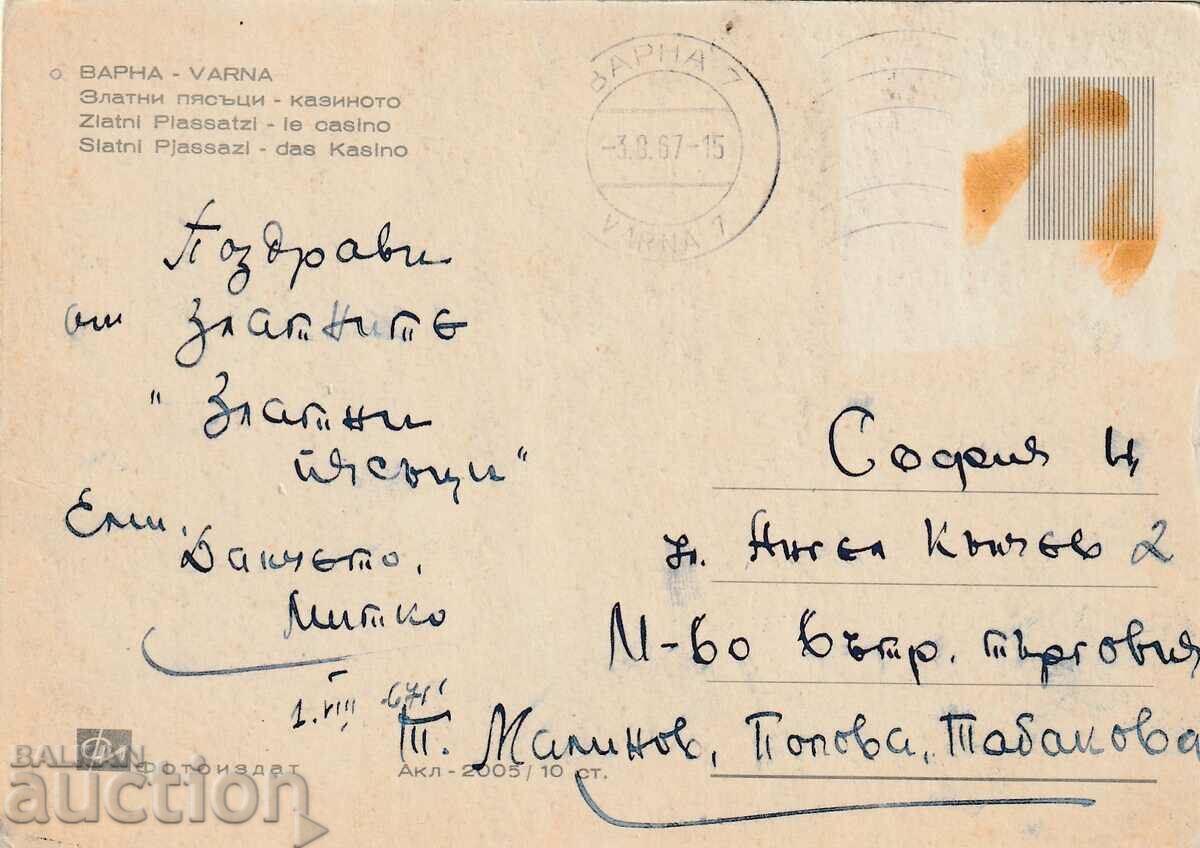 ВАРНА - VARNA
Златни пясъци - казиното
Zlatni Piassatzi - le casino
Slatni Pjassazi - das Kasino
ВАРНА 7
-3.8.67-15
VARNA 7
Поздрави
от златните
"Златни
пясъци"
Ели,
Данчето,
Митко
1.VIII 67г
София ц
ул. Ангел Кънчев 2
М-во вътр. търговия
Т. Малинов, Попова, Табакова
Фотоиздат
Акл-2005/10 ст.
BALKAN
auction